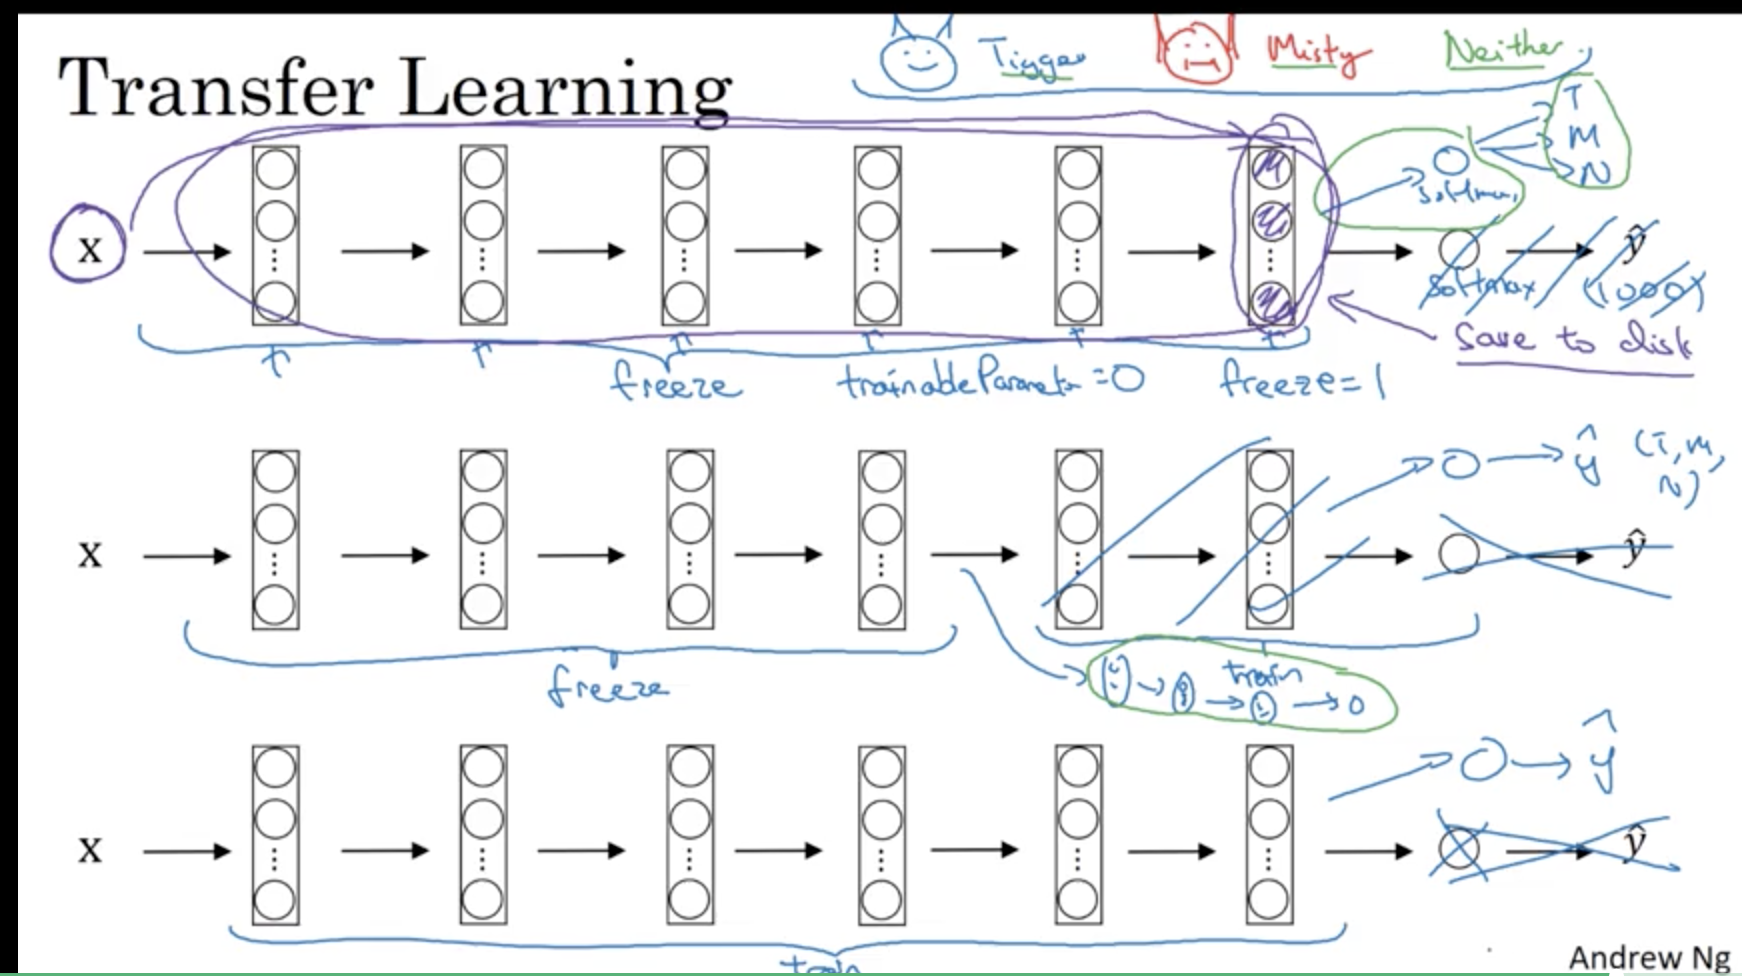 Transfer Learning
Tigger Misty Neither
T
M
N
softmax
x ŷ
softmax (1000)
Save to disk
freeze trainableParameter=0 freeze=1
ŷ (T, M,
N)
x ŷ
train
freeze
ŷ
x ŷ
Andrew Ng